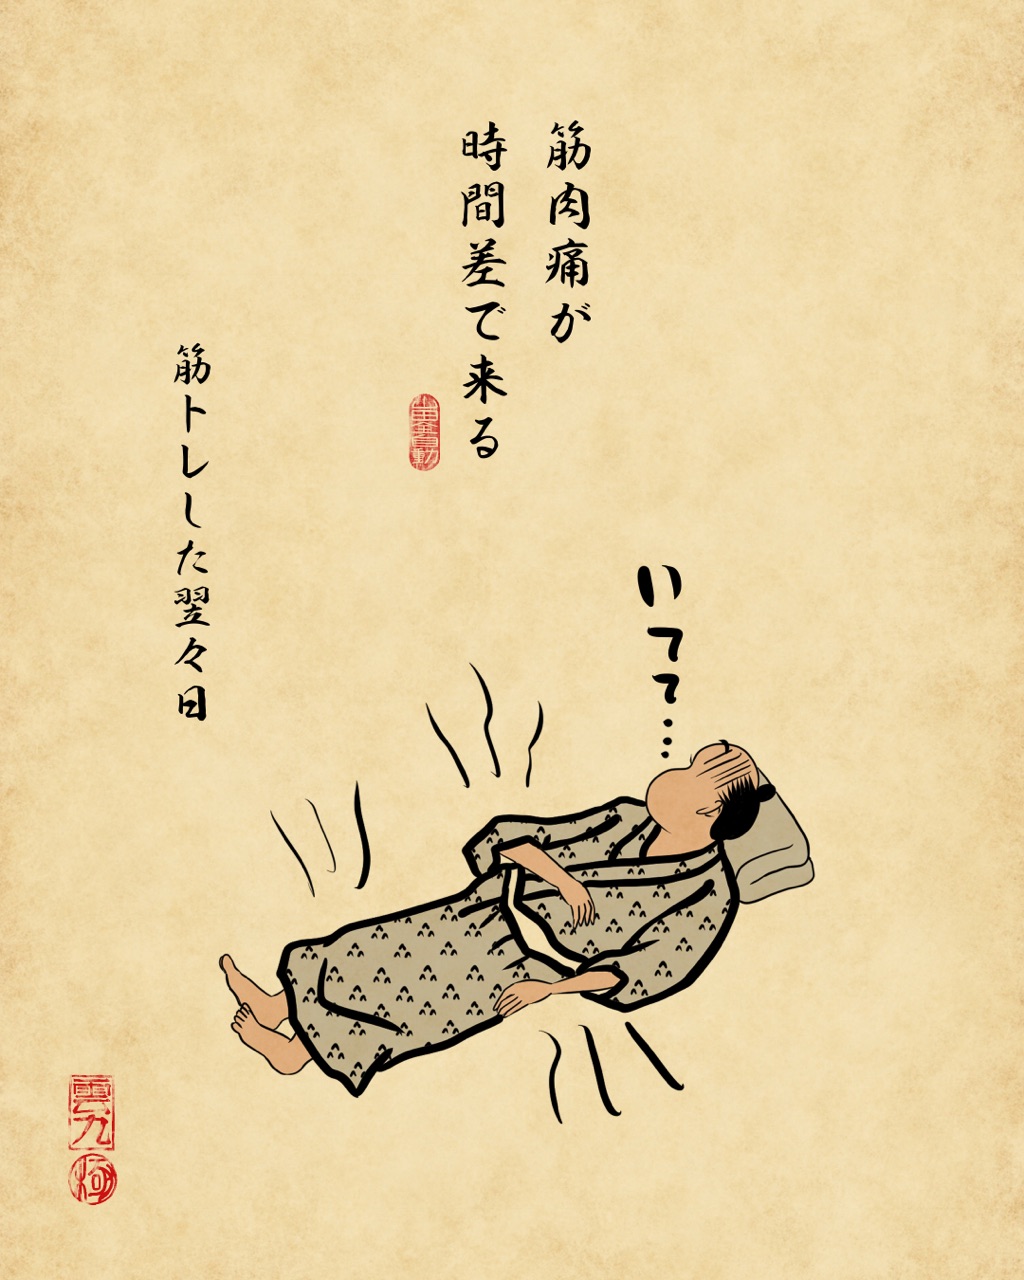 筋肉痛が
時間差で来る
筋トレした翌々日
いてて…